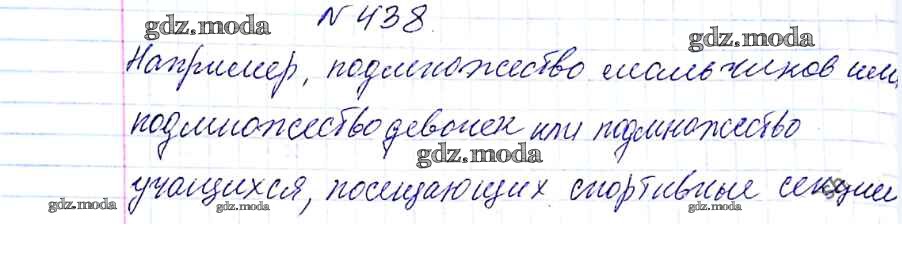 N 438.
gdz.moda
gdz.moda
Например, подмножество мальчиков или,
подмножество девочек или подмножество
gdz.moda
учащихся, посещающих спортивные секции
gdz.moda
gdz.moda